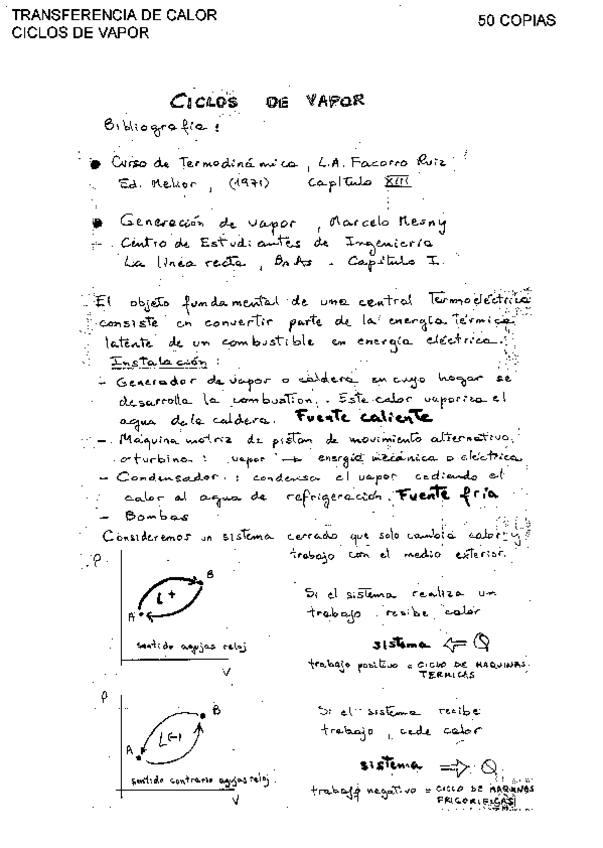 TRANSFERENCIA DE CALOR
CICLOS DE VAPOR
50 COPIAS
CICLOS DE VAPOR
Bibliografia:
Curso de Termodinámica, L.A. Facorro Ruiz
Ed. Mellior, (1971) Capítulo XIII
Generación de vapor, Marcelo Mesny
- Centro de Estudiantes de Ingeniería
La línea recta, Bs As - Capítulo I.
El objeto fundamental de una central Termoeléctrica
consiste en convertir parte de la energía Térmica
latente de un combustible en energía eléctrica.
Instalación:
- Generador de vapor o caldera en cuyo hogar se
desarrolla la combustion. Este calor vaporiza el
agua de la caldera. Fuente caliente
- Maquina motriz de piston de movimiento alternativo,
o turbina: vapor → energía mecánica o eléctrica
- Condensador: condensa el vapor cediendo el
calor al agua de refrigeración. Fuente fria
- Bombas
Consideremos un sistema cerrado que solo cambia calor y
trabajo con el medio exterior.
P
B
L+
A
sentido agujas reloj
V
Si el sistema realiza un
trabajo recibe calor
sistema ⇐ Q
trabajo positivo = CICLO DE MAQUINAS
TERMICAS
P
B
L(-)
A
sentido contrario agujas reloj
V
Si el sistema recibe
trabajo, cede calor
sistema ⇒ Q
trabajo negativo = CICLO DE MAQUINAS
FRIGORIFICAS